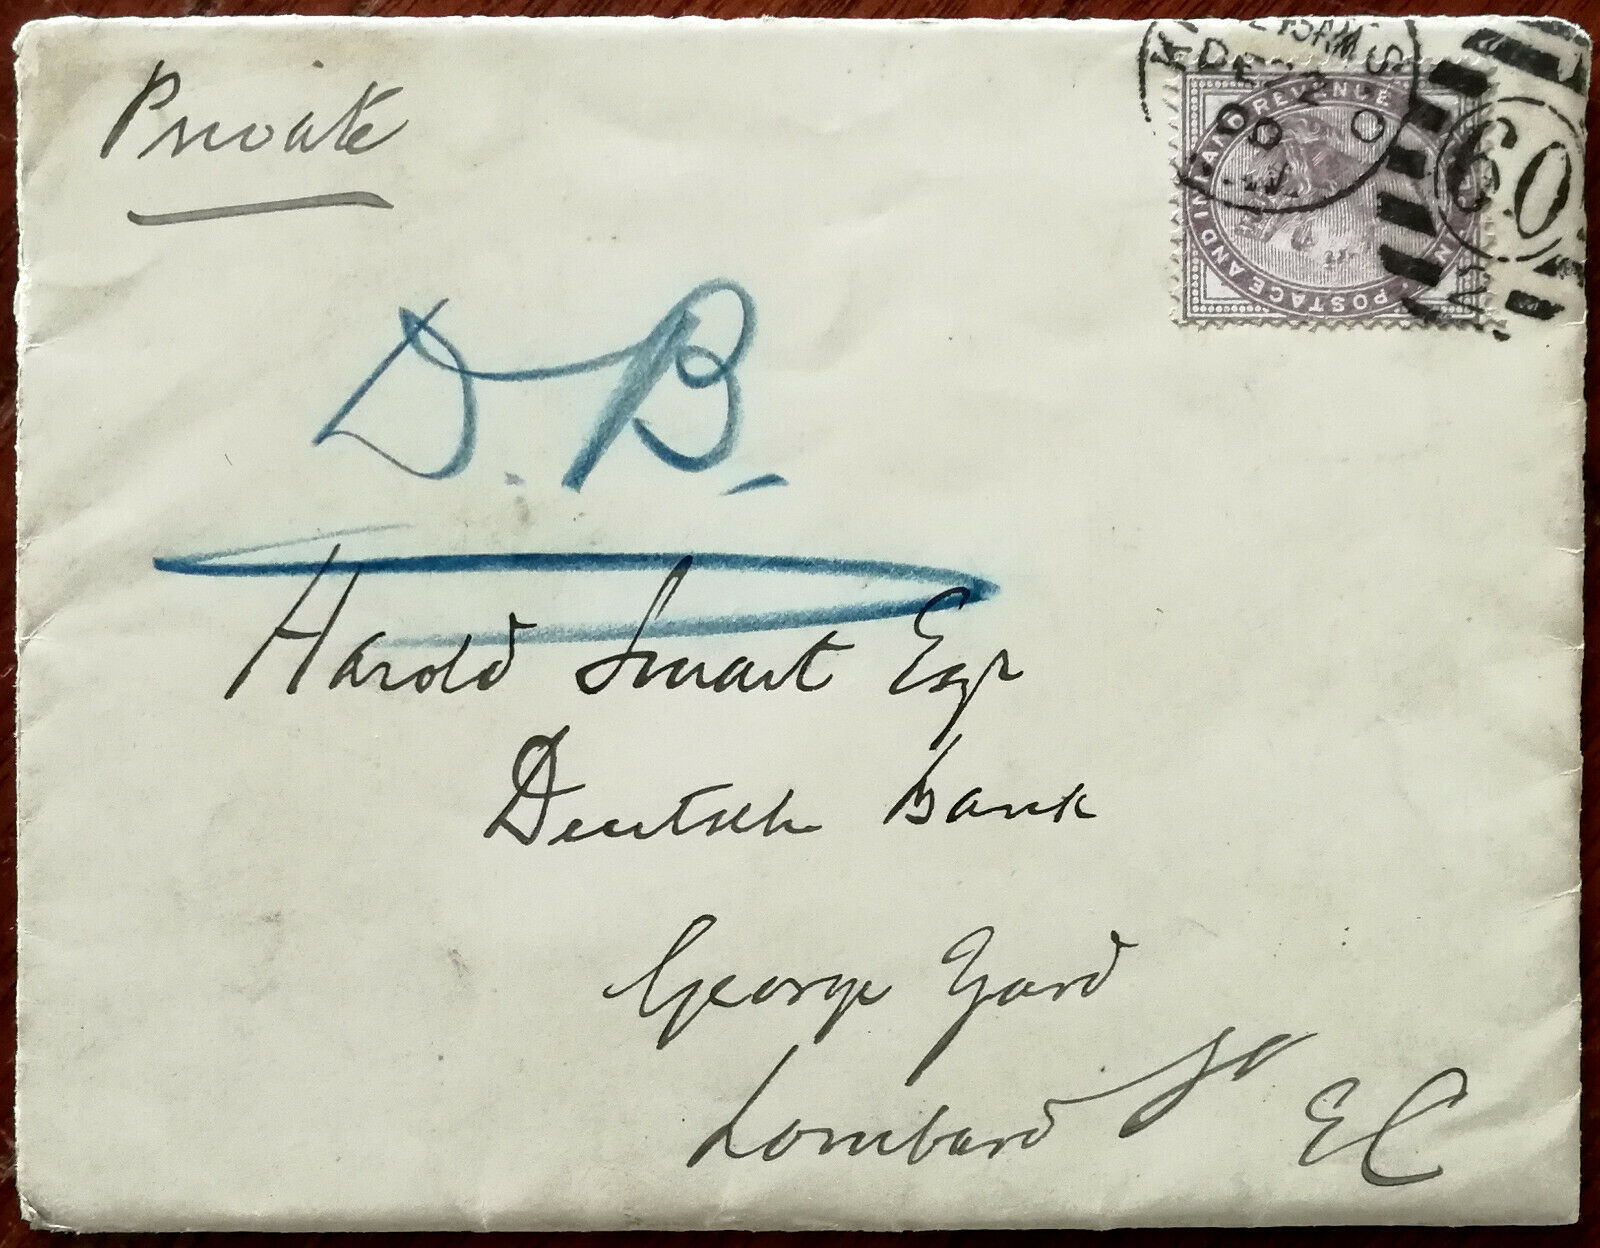 Private
D. B.
Harold Smart Esqr
Deutsche Bank
George Yard
Lombard St EC
POSTAGE AND INLAND REVENUE
60